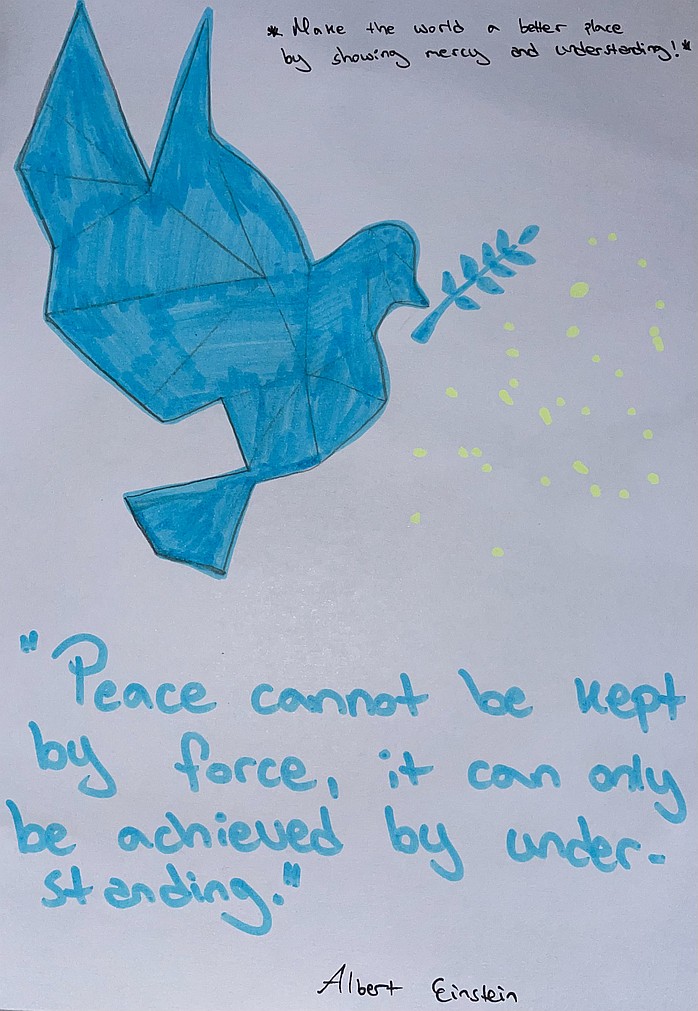 * Make the world a better place
by showing mercy and understanding! *
"Peace cannot be kept
by force, it can only
be achieved by under-
standing."
Albert Einstein